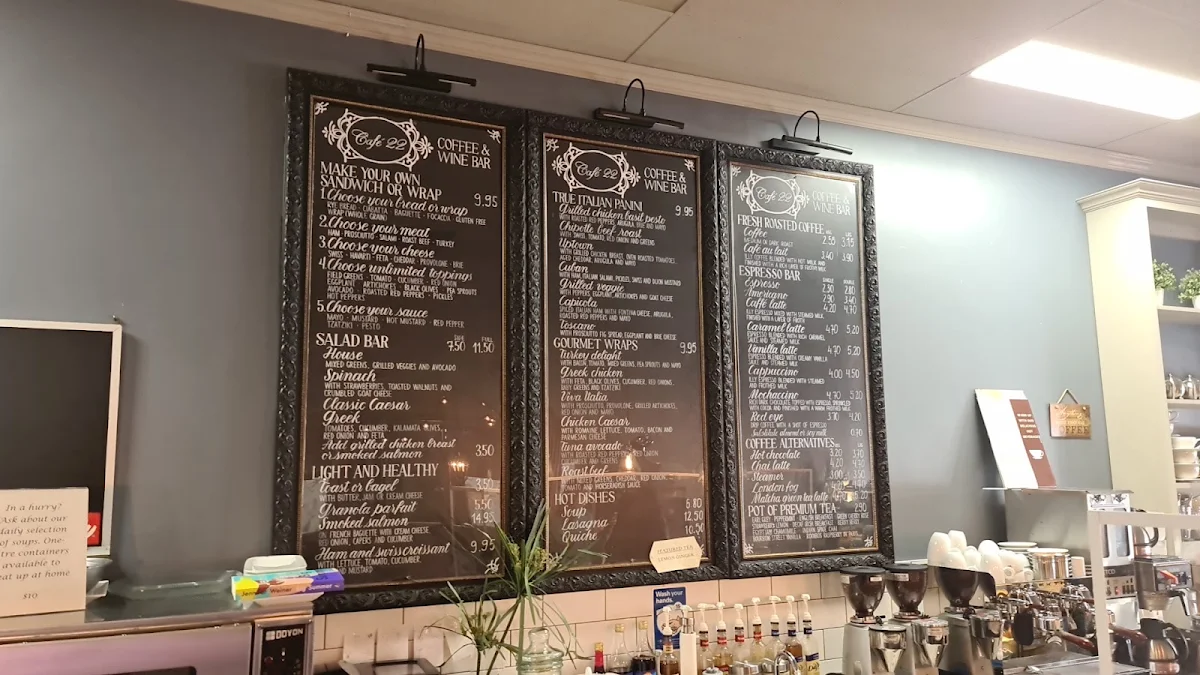 Café 22
COFFEE &
WINE BAR
MAKE YOUR OWN
SANDWICH OR WRAP 9.95
1.Choose your bread or wrap
RYE BREAD · CIABATTA · BAGUETTE · FOCACCIA · GLUTEN FREE
WRAP (WHOLE GRAIN)
2.Choose your meat
HAM · PROSCIUTTO · SALAMI · ROAST BEEF · TURKEY
3.Choose your cheese
SWISS · HAVARTI · FETA · CHEDDAR · PROVOLONE · BRIE
4.Choose unlimited toppings
FIELD GREENS · TOMATO · CUCUMBER · RED ONION
EGGPLANT · ARTICHOKES · BLACK OLIVES · PEA SPROUTS
AVOCADO · ROASTED RED PEPPERS · PICKLES
HOT PEPPERS
5.Choose your sauce
MAYO · MUSTARD · HOT MUSTARD · RED PEPPER
TZATZIKI · PESTO
SALAD BAR 7.50 11.50
House
MIXED GREENS, GRILLED VEGGIES AND AVOCADO
Spinach
WITH STRAWBERRIES, TOASTED WALNUTS AND
CRUMBLED GOAT CHEESE
Classic Caesar
Greek
TOMATOES, CUCUMBER, KALAMATA OLIVES,
RED ONION AND FETA
Add grilled chicken breast
or smoked salmon 3.50
LIGHT AND HEALTHY
Toast or bagel 3.50
WITH BUTTER, JAM OR CREAM CHEESE
Granola parfait 5.50
Smoked salmon 14.95
ON FRENCH BAGUETTE WITH CREAM CHEESE,
RED ONION, CAPERS AND CUCUMBER
Ham and swiss croissant 9.95
WITH LETTUCE, TOMATO, CUCUMBER,
AND MUSTARD
Café 22
COFFEE &
WINE BAR
TRUE ITALIAN PANINI 9.95
Grilled chicken basil pesto
WITH ROASTED RED PEPPERS, ARUGULA, BRIE AND MAYO
Chipotle beef roast
WITH SWISS, TOMATO, RED ONION AND GREENS
Uptown
WITH GRILLED CHICKEN BREAST, OVEN ROASTED TOMATOES,
AGED CHEDDAR, ARUGULA AND MAYO
Cuban
WITH HAM, ITALIAN SALAMI, PICKLES, SWISS AND DIJON MUSTARD
Grilled veggie
WITH PEPPERS, EGGPLANT, ARTICHOKES AND GOAT CHEESE
Capicola
SPICED ITALIAN HAM WITH FONTINA CHEESE, ARUGULA,
ROASTED RED PEPPERS AND MAYO
Toscano
WITH PROSCIUTTO FIG SPREAD, EGGPLANT AND BRIE CHEESE
GOURMET WRAPS 9.95
Turkey delight
WITH BACON, TOMATO, MIXED GREENS, PEA SPROUTS AND MAYO
Greek chicken
WITH FETA, BLACK OLIVES, CUCUMBER, RED ONIONS,
BABY GREENS AND TZATZIKI
Viva Italia
WITH PROSCIUTTO, PROVOLONE, GRILLED ARTICHOKES,
RED ONION AND MAYO
Chicken Caesar
WITH ROMAINE LETTUCE, TOMATO, BACON AND
PARMESAN CHEESE
Tuna avocado
WITH ROASTED RED PEPPERS, RED ONION,
CUCUMBER AND GREENS
Roast beef
WITH MIXED GREENS, CHEDDAR, RED ONION,
TOMATO AND HORSERADISH SAUCE
HOT DISHES
Soup 6.80
Lasagna 12.50
Quiche 10.50
Café 22
COFFEE &
WINE BAR
FRESH ROASTED COFFEE
Coffee 2.55 3.15
MEDIUM OR DARK ROAST
Cafe au lait 3.40 3.90
ILLY COFFEE BLENDED WITH HOT MILK AND
FINISHED WITH A RICH LAYER OF FROTHY MILK
ESPRESSO BAR
Espresso 2.30 2.80
Americano 2.90 3.40
Caffe latte 4.20 4.70
ILLY ESPRESSO MIXED WITH STEAMED MILK AND
FINISHED WITH A LAYER OF FROTH
Caramel latte 4.70 5.20
ESPRESSO BLENDED WITH RICH CARAMEL
SAUCE AND STEAMED MILK
Vanilla latte 4.70 5.20
ESPRESSO BLENDED WITH CREAMY VANILLA
SAUCE AND STEAMED MILK
Cappuccino 4.00 4.50
ILLY ESPRESSO BLENDED WITH STEAMED
AND FROTHED MILK
Mochaccino 4.70 5.20
RICH DARK CHOCOLATE, TOPPED WITH ESPRESSO, SPRINKLED
WITH COCOA AND FINISHED WITH WARM FROTHED MILK
Red eye 3.70 4.20
DRIP COFFEE WITH A SHOT OF ESPRESSO
Substitute almond or soy milk 0.70
COFFEE ALTERNATIVES
Hot chocolate 3.20 3.70
Chai latte 4.20
Steamer
London fog
Matcha green tea latte
POT OF PREMIUM TEA 2.90
In a hurry?
Ask about our
daily selection
of soups. One-
tre containers
available to
eat up at home
$10
DOYON
Wash your
hands.